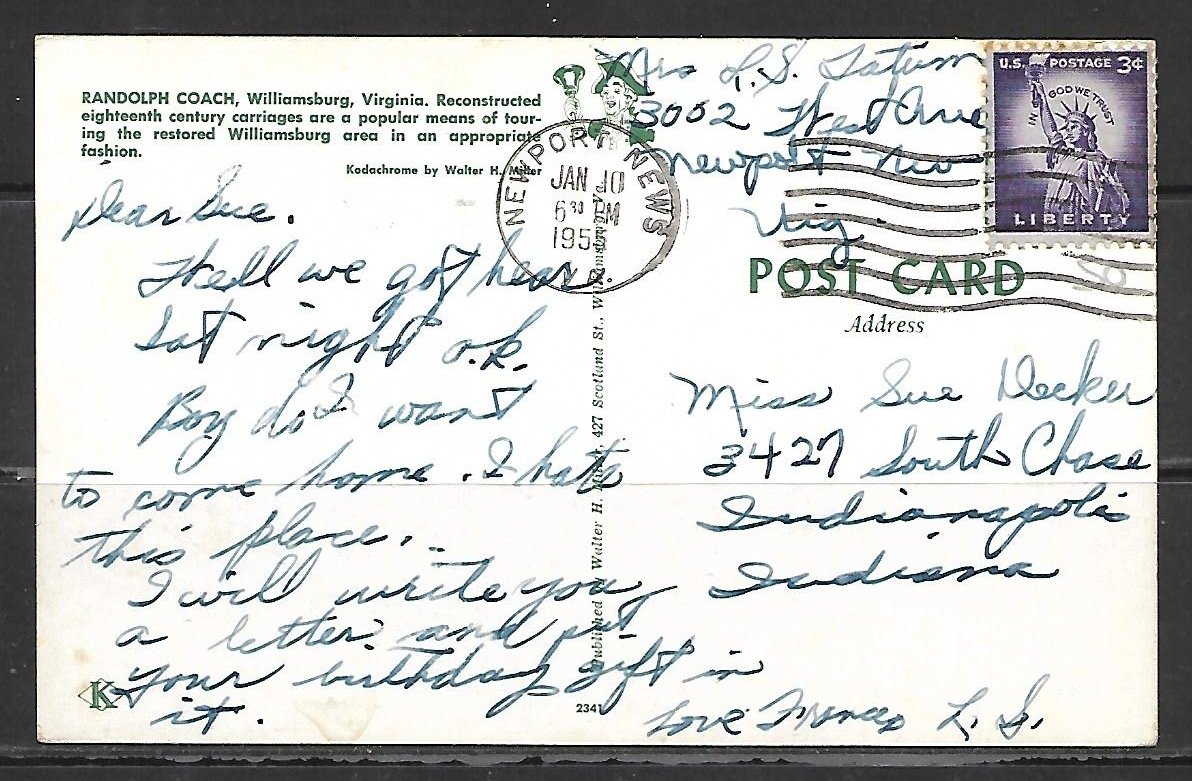 RANDOLPH COACH, Williamsburg, Virginia. Reconstructed
eighteenth century carriages are a popular means of tour-
ing the restored Williamsburg area in an appropriate
fashion.
Kodachrome by Walter H. Miller
Dear Sue.
Well we got hear
Sat night o.k.
Boy do I want
to come home. I hate
this place...
I will write you
a letter and put
your birthday gift in
it.
Love Frances L. S.
K
2341
Published Walter H. Miller, 427 Scotland St., Williamsburg, Va.
Mrs L.S. Tatum
3002 West Ave
Newport Nw
Vig.
NEWPORT NEWS
JAN 10
6 30 PM
195
VA
U.S. POSTAGE 3¢
IN GOD WE TRUST
LIBERTY
POST CARD
Address
Miss Sue Decker
3427 South Chase
Indianapolis
Indiana